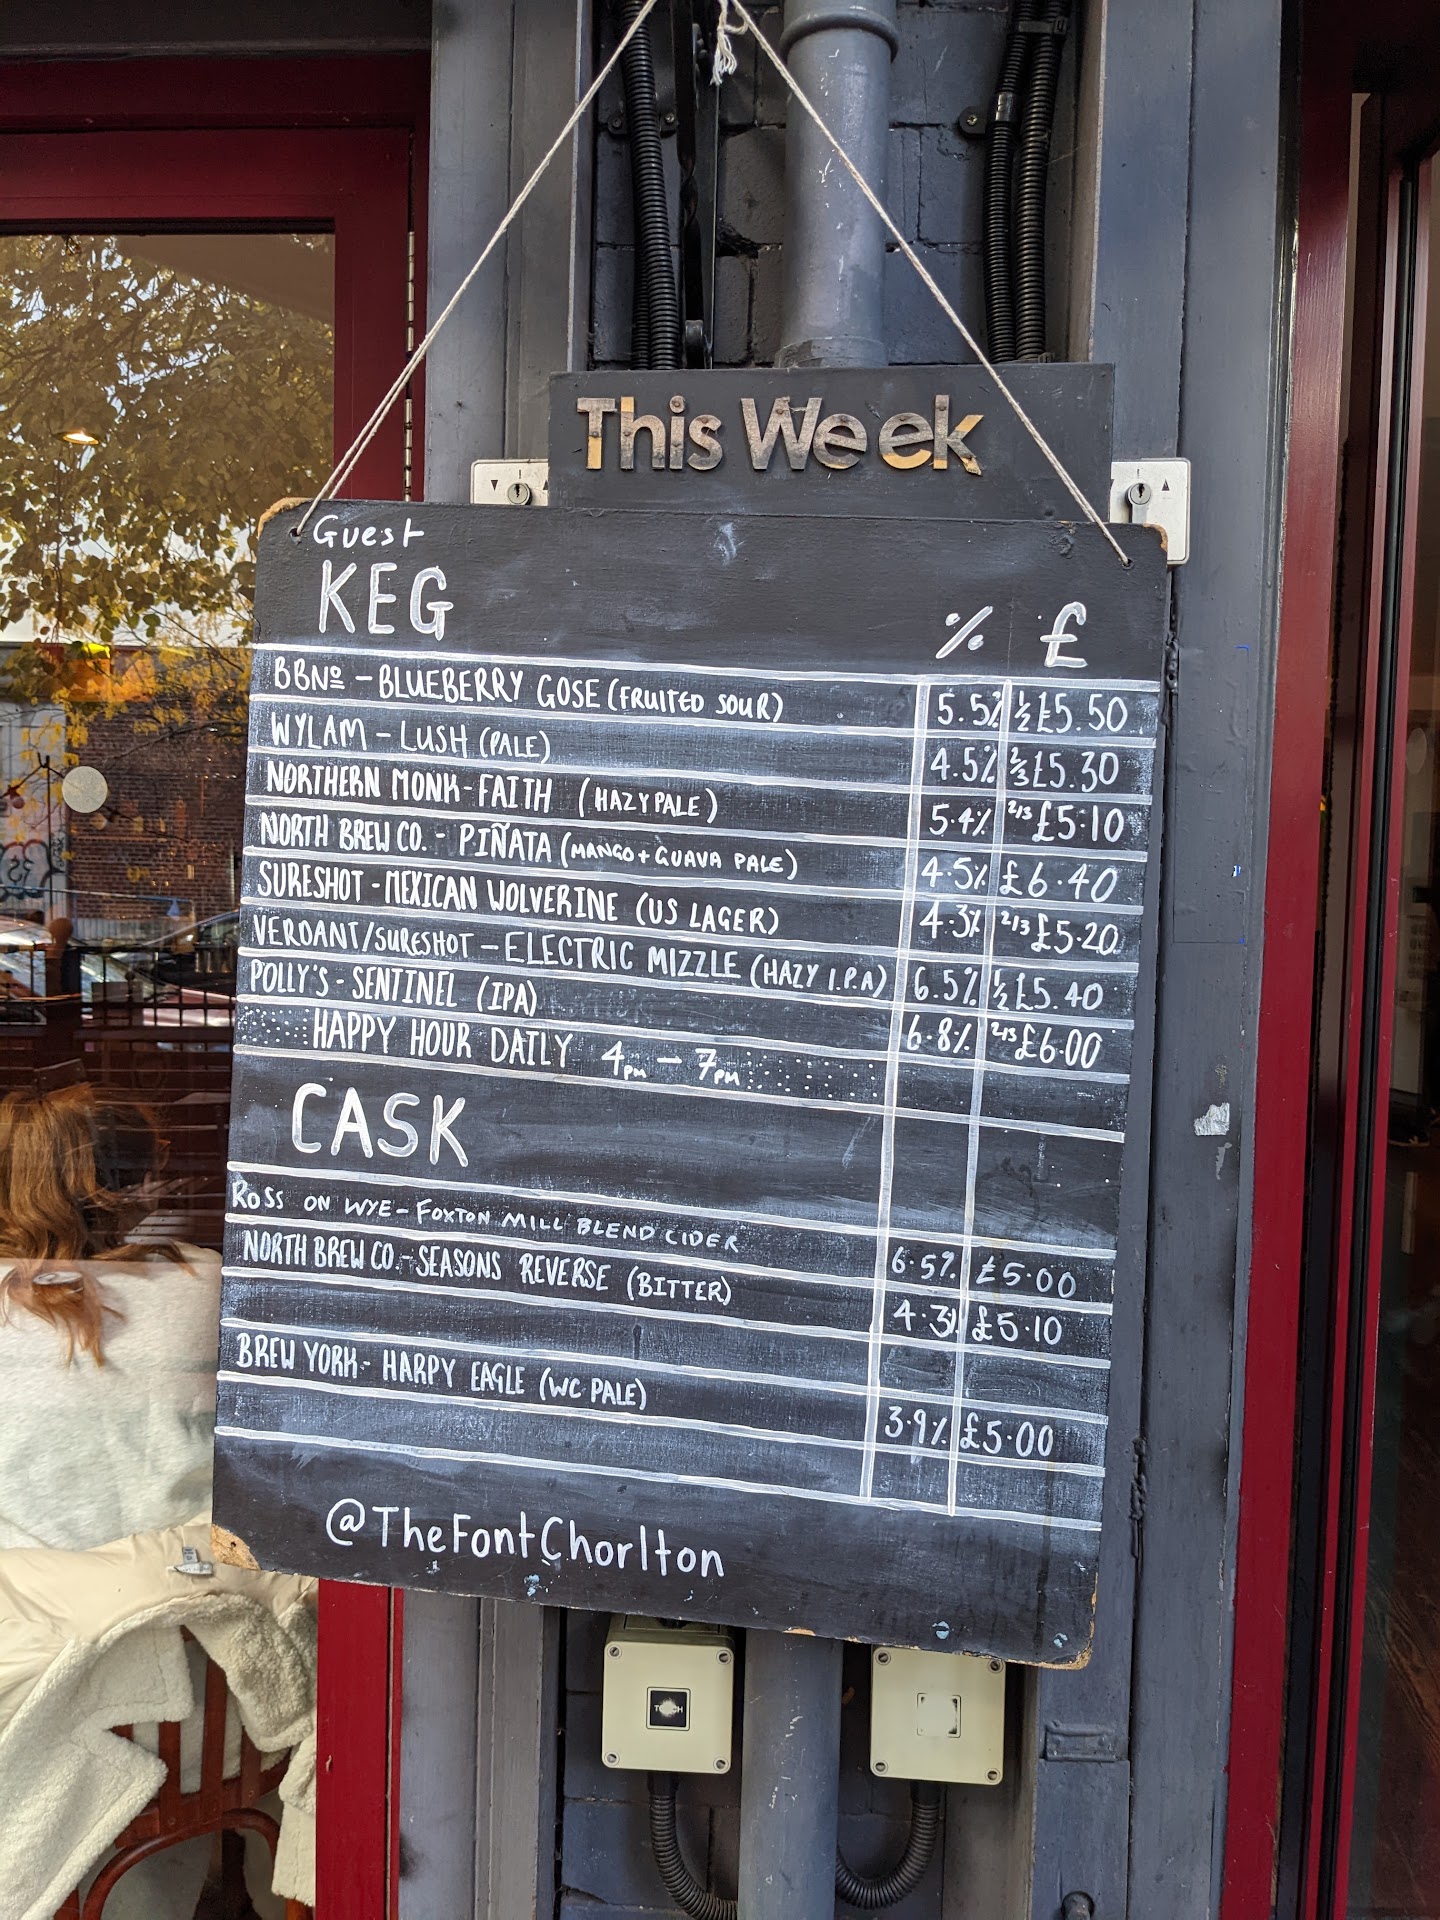 This Week
Guest
KEG % £
BBNº - BLUEBERRY GOSE (FRUITED SOUR) 5.5% ½ £5.50
WYLAM - LUSH (PALE) 4.5% ⅔ £5.30
NORTHERN MONK - FAITH (HAZY PALE) 5.4% 2/3 £5.10
NORTH BREW CO. - PIÑATA (MANGO + GUAVA PALE) 4.5% £6.40
SURESHOT - MEXICAN WOLVERINE (US LAGER) 4.3% 2/3 £5.20
VERDANT/SURESHOT - ELECTRIC MIZZLE (HAZY I.P.A) 6.5% ½ £5.40
POLLY'S - SENTINEL (IPA) 6.8% 2/3 £6.00
HAPPY HOUR DAILY 4pm - 7pm
CASK
ROSS ON WYE - FOXTON MILL BLEND CIDER 6.5% £5.00
NORTH BREW CO. - SEASONS REVERSE (BITTER) 4.3% £5.10
BREW YORK - HARPY EAGLE (WC PALE) 3.9% £5.00
@TheFontChorlton
TOUCH